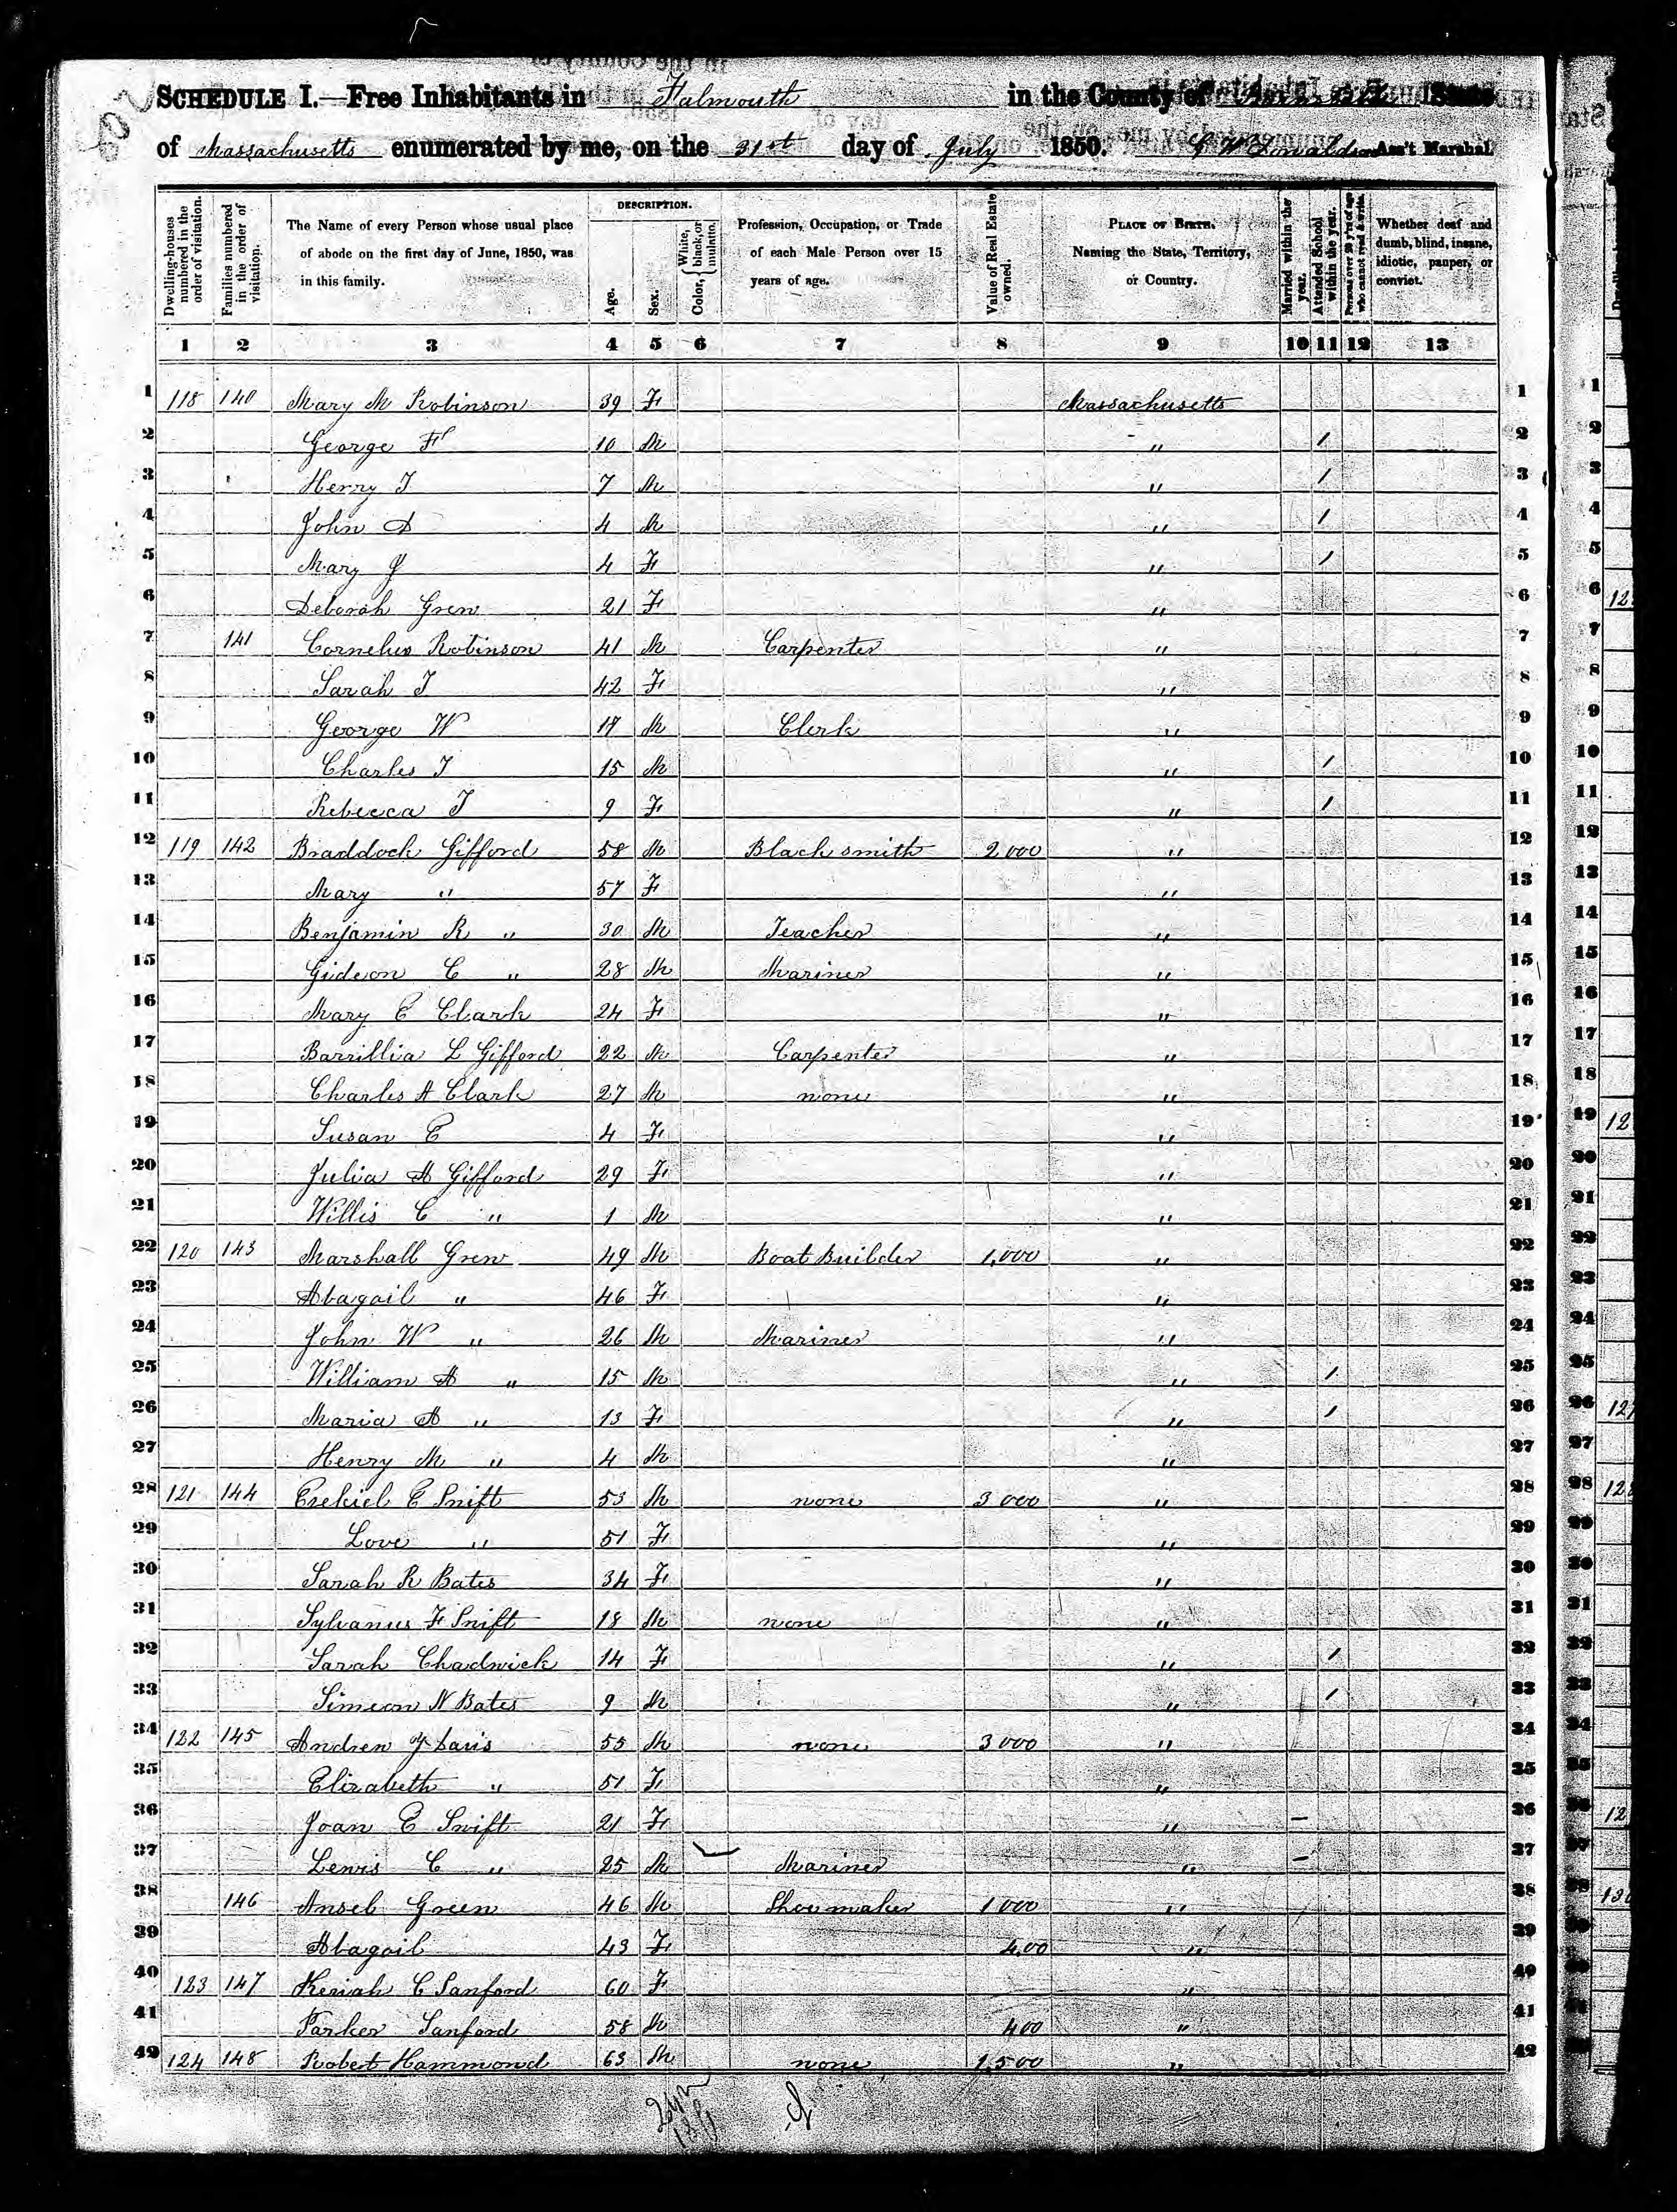 602
SCHEDULE I.—Free Inhabitants in Falmouth in the County of State
of Massachusetts enumerated by me, on the 31st day of July 1850. Ass't Marshal.
Dwelling-houses numbered in the order of visitation.
Families numbered in the order of visitation.
The Name of every Person whose usual place of abode on the first day of June, 1850, was in this family.
DESCRIPTION.
Age.
Sex.
Color, { White, black, or mulatto.
Profession, Occupation, or Trade of each Male Person over 15 years of age.
Value of Real Estate owned.
PLACE OF BIRTH. Naming the State, Territory, or Country.
Married within the year.
Attended School within the year.
Persons over 20 y'rs of age who cannot read & write.
Whether deaf and dumb, blind, insane, idiotic, pauper, or convict.
1 2 3 4 5 6 7 8 9 10 11 12 13
1 118 140 Mary M Robinson 39 F Massachusetts 1
2 George F 10 M " / 2
3 Henry T 7 M " / 3
4 John D 4 M " / 4
5 Mary J 4 F " / 5
6 Deborah Grew 21 F " 6
7 141 Cornelius Robinson 41 M Carpenter " 7
8 Sarah T 42 F " 8
9 George W 17 M Clerk " 9
10 Charles T 15 M " / 10
11 Rebecca T 9 F " / 11
12 119 142 Braddock Gifford 58 M Black smith 2 000 " 12
13 Mary " 57 F " 13
14 Benjamin R " 30 M Teacher " 14
15 Gideon C " 28 M Mariner " 15
16 Mary E Clark 24 F " 16
17 Barrillia L Gifford 22 M Carpenter " 17
18 Charles A Clark 27 M none " 18
19 Susan E 4 F " 19
20 Julia A Gifford 29 F " 20
21 Willis C " 1 M " 21
22 120 143 Marshall Grew 49 M Boat Builder 1,000 " 22
23 Abagail " 46 F " 23
24 John W " 26 M Mariner " 24
25 William A " 15 M " / 25
26 Maria A " 13 F " / 26
27 Henry M " 4 M " 27
28 121 144 Ezekiel E Swift 53 M none 3 000 " 28
29 Love " 51 F " 29
30 Sarah R Bates 34 F " 30
31 Sylvanus F Swift 18 M none " 31
32 Sarah Chadwick 14 F " / 32
33 Simeon N Bates 9 M " / 33
34 122 145 Andrew Davis 55 M none 3 000 " 34
35 Elizabeth " 51 F " 35
36 Joan E Swift 21 F " – 36
37 Lewis C " 25 M Mariner " – 37
38 146 Ansel Green 46 M Shoe maker 1 000 " 38
39 Abagail 43 F 4,00 " 39
40 123 147 Keziah C Sanford 60 F " 40
41 Parker Sanford 58 M 400 " 41
42 124 148 Robert Hammond 63 M none 1,500 " 42